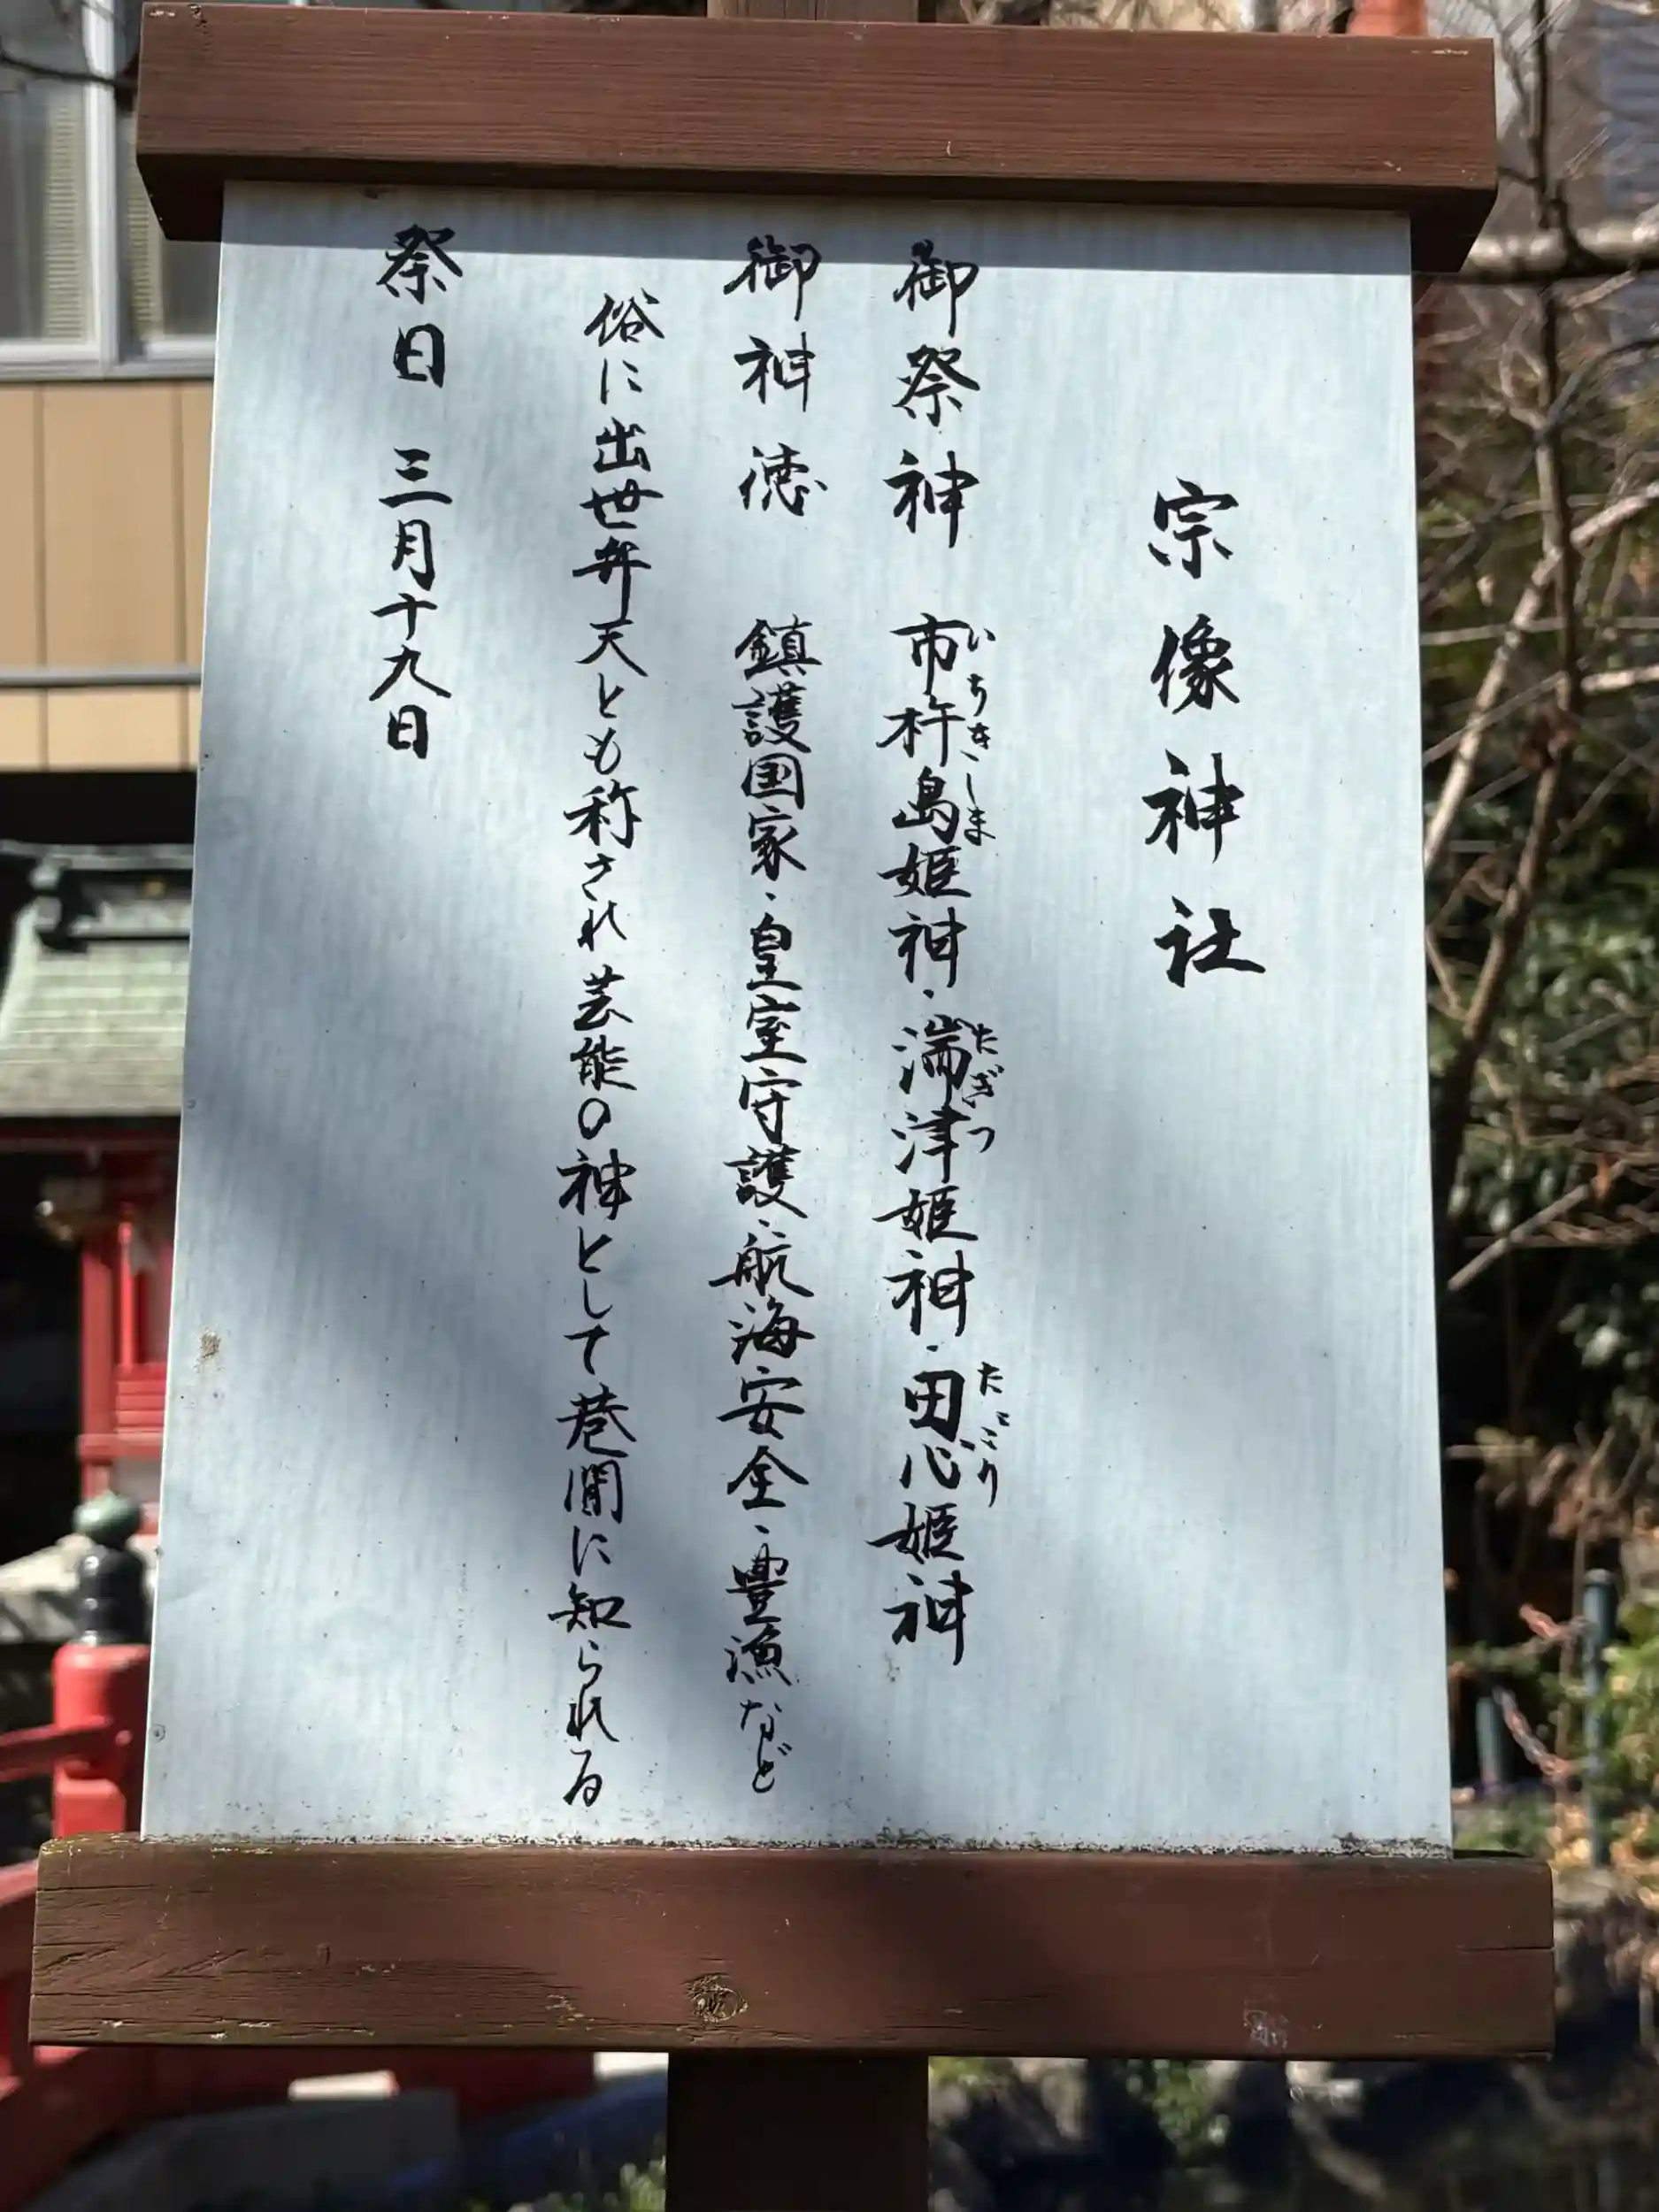 宗像神社
御祭神 市杵島姫神・湍津姫神・田心姫神
いちきしま
たぎつ
たごり
御神徳 鎮護国家・皇室守護・航海安全・豊漁など
俗に出世弁天とも称され芸能の神として巷間に知られる
祭日 三月十九日